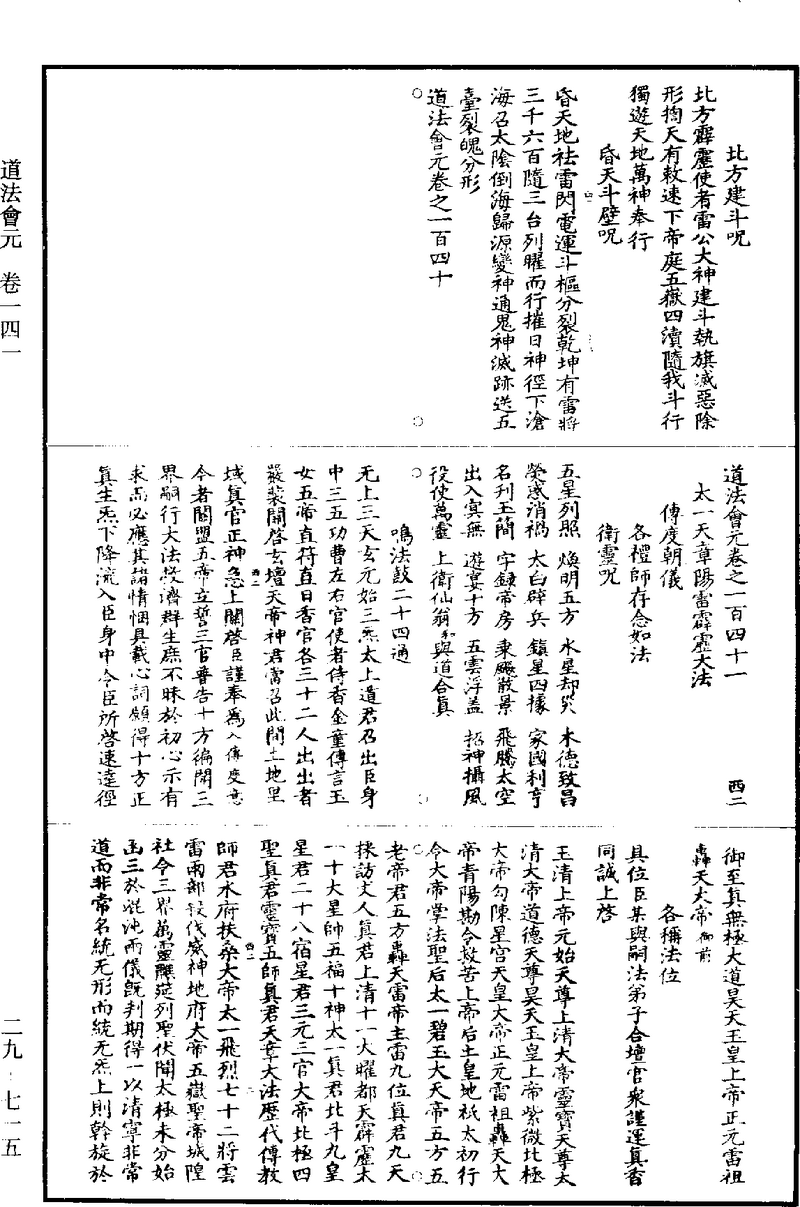 北方建斗呪
北方霹靂使者雷公大神建斗執旗滅惡除
形掏天有敕速下帝庭五嶽四瀆隨我斗行
獨遊天地萬神奉行
昏天斗壁呪
昏天地祛雷閃電運斗樞分裂乾坤有雷將
三千六百隨三台列曜而行摧日神徑下滄
海召太陰倒海歸源變神通鬼神滅跡送五
臺裂魄分形
道法會元卷之一百四十
道法會元卷之一百四十一
西二
太一天章陽雷霹靂大法
傳度朝儀
各禮師存念如法
衛靈呪
五星列照 煥明五方 水星却災 木德致昌
熒惑消禍 太白辟兵 鎮星四據 家國利亨
名刊玉簡 字錄帝房 乘飈散景 飛騰太空
出入冥無 遊宴十方 五雲浮蓋 招神攝風
役使萬靈 上衛仙翁和與道合眞
鳴法鼓二十四通
无上三天玄元始三炁太上道君召出臣身
中三五功曹左右官使者侍香金童傳言玉
女五帝直符直日香官各三十二人出出者
嚴裝關啓玄壇天帝神君當召此間土地里
域真官正神急上關啓臣謹奉爲入傳度意
今者關盟五帝立誓三官普告十方徧聞三
界嗣行大法救濟群生庶不昧於初心示有
求而必應其諸情悃具載心詞願得十方正
眞生炁下降流入臣身中令臣所啓速達徑
御至真無極大道昊天玉皇上帝正元雷祖
轟天大帝御前
各稱法位
具位臣某與嗣法弟子合壇官衆謹運真香
同誠上啓
玉清上帝元始天尊上清大帝靈寶天尊太
清大帝道德天尊昊天玉皇上帝紫微北極
大帝勾陳星宮天皇大帝正元雷祖轟天大
帝青陽勘令救苦上帝后土皇地祇太初行
令大帝掌法聖后太一碧玉大天帝五方五
老帝君五方轟天雷帝主雷九位眞君九天
採訪丈人真君上清十一大曜都天霹靂木
一十大星帥五福十神太一眞君北斗九皇
星君二十八宿星君三元三官大帝北極四
聖眞君靈寶五師眞君天章大法歷代傳教
師君水府扶桑大帝太一飛烈七十二將雲
雷兩部殺伐威神地府大帝五嶽聖帝城隍
社令三界萬靈聽筵列聖伏聞太極未分始
函三於混沌兩儀旣判期得一以清寧非常
道而非常名統无形而統无炁上則斡旋於
道法會元 卷一四一
二九·七一五